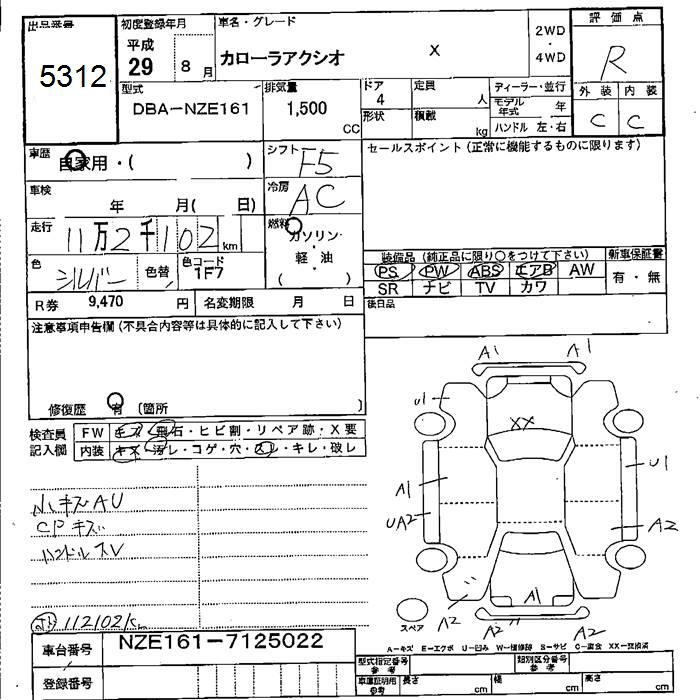 出品番号
5312
初度登録年月
平成
29 8 月
車名・グレード
カローラアクシオ X
2WD
・
4WD
評価点
R
外装 内装
C C
型式
DBA-NZE161
排気量
1,500
CC
ドア
4
形状
定員
人
積載
kg
ディーラー・並行
モデル年式 年
ハンドル 左・右
車歴
自家用・( )
シフト
F5
車検
年 月( 日)
冷房
AC
走行
11万2千102 km
燃料
ガソリン
・
軽・油
( )
色
シルバー
色替
色コード
1F7
R券 9,470 円
名変期限 月 日
セールスポイント(正常に機能するものに限ります)
装備品 (純正品に限り○をつけて下さい)
PS PW ABS エアB AW
SR ナビ TV カワ
新車保証書
有・無
後日品
注意事項申告欄(不具合内容等は具体的に記入して下さい)
修復歴 有 〔箇所 〕
検査員
記入欄
FW キズ・飛石・ヒビ割・リペア跡・X要
内装 キズ・汚レ・コゲ・穴・スレ・キレ・破レ
内キズAU
CPキズ
ハンドルスレ
112102K
A1 A1
U1
XX
U1
A1
UA2
A2
A1
A2 A2 A2
スペア
A-キズ E-エクボ U-凹み W-補修跡 S-サビ C-腐食 XX-交換済
車台番号 NZE161-7125022
登録番号
型式指定番号
参考
類別区分番号
参考
車庫証明用
参考
長さ cm
幅 cm
高さ cm